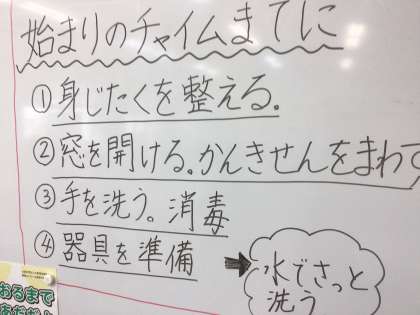 始まりのチャイムまでに
①身じたくを整える。
②窓を開ける。かんきせんをまわす
③手を洗う。消毒
④器具を準備
水でさっと
洗う
おるまで